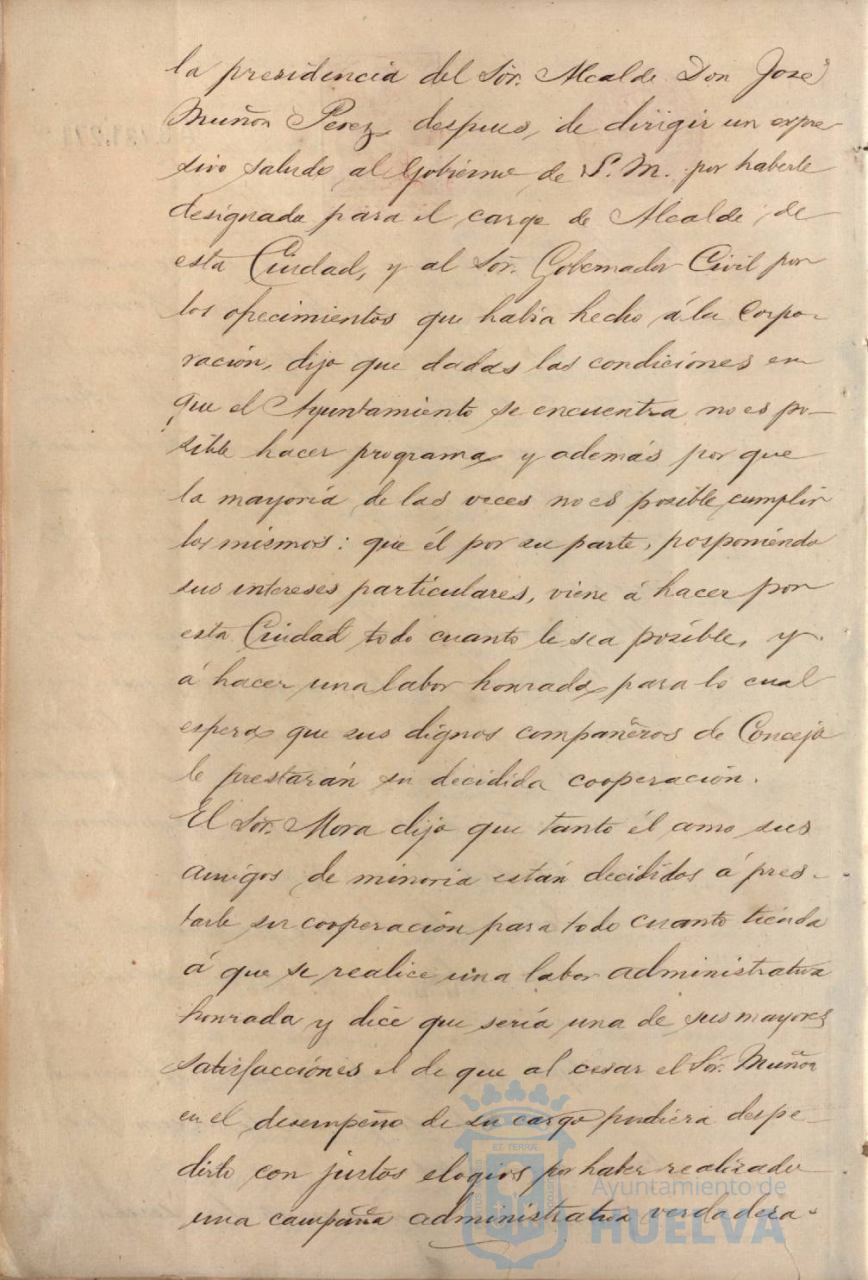 la presidencia del Sör. Alcalde Don José
Muñoz Perez, despues, de dirigir un expre-
sivo saludo al Gobierno de S. M. por haberle
designado para el cargo de Alcalde de
esta Ciudad, y al Sör. Gobernador Civil por
los ofrecimientos que había hecho á la Corpo-
ración, dijo que dadas las condiciones en
que el Ayuntamiento se encuentra no es po-
sible hacer programa y además por que
la mayoría de las veces no es posible cumplir
los mismos: que él por su parte, posponiendo
sus intereses particulares, viene á hacer por
esta Ciudad todo cuanto le sea posible, y
á hacer una labor honrada, para lo cual
espera que sus dignos compañeros de Concejo
le prestarán su decidida cooperación.
El Sör. Mora dijo que tanto él amo sus
amigos de minoria están decididos á pres-
tarle su cooperación para todo cuanto tienda
á que se realice una labor administrativa
honrada y dice que sería una de sus mayores
satisfacciónes el de que al cesar el Sör. Muñoz
en el desempeño de su cargo pudiera despe-
dirlo con justos elogios por haber realizado
una campaña administrativa verdadera-
ET TERRÆ
Ayuntamiento de
HUELVA